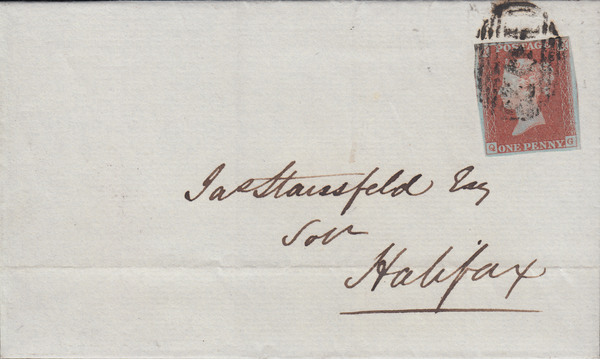 POSTAGE
Q G
ONE PENNY
Jas Stansfeld Esq
Solr
Halifax